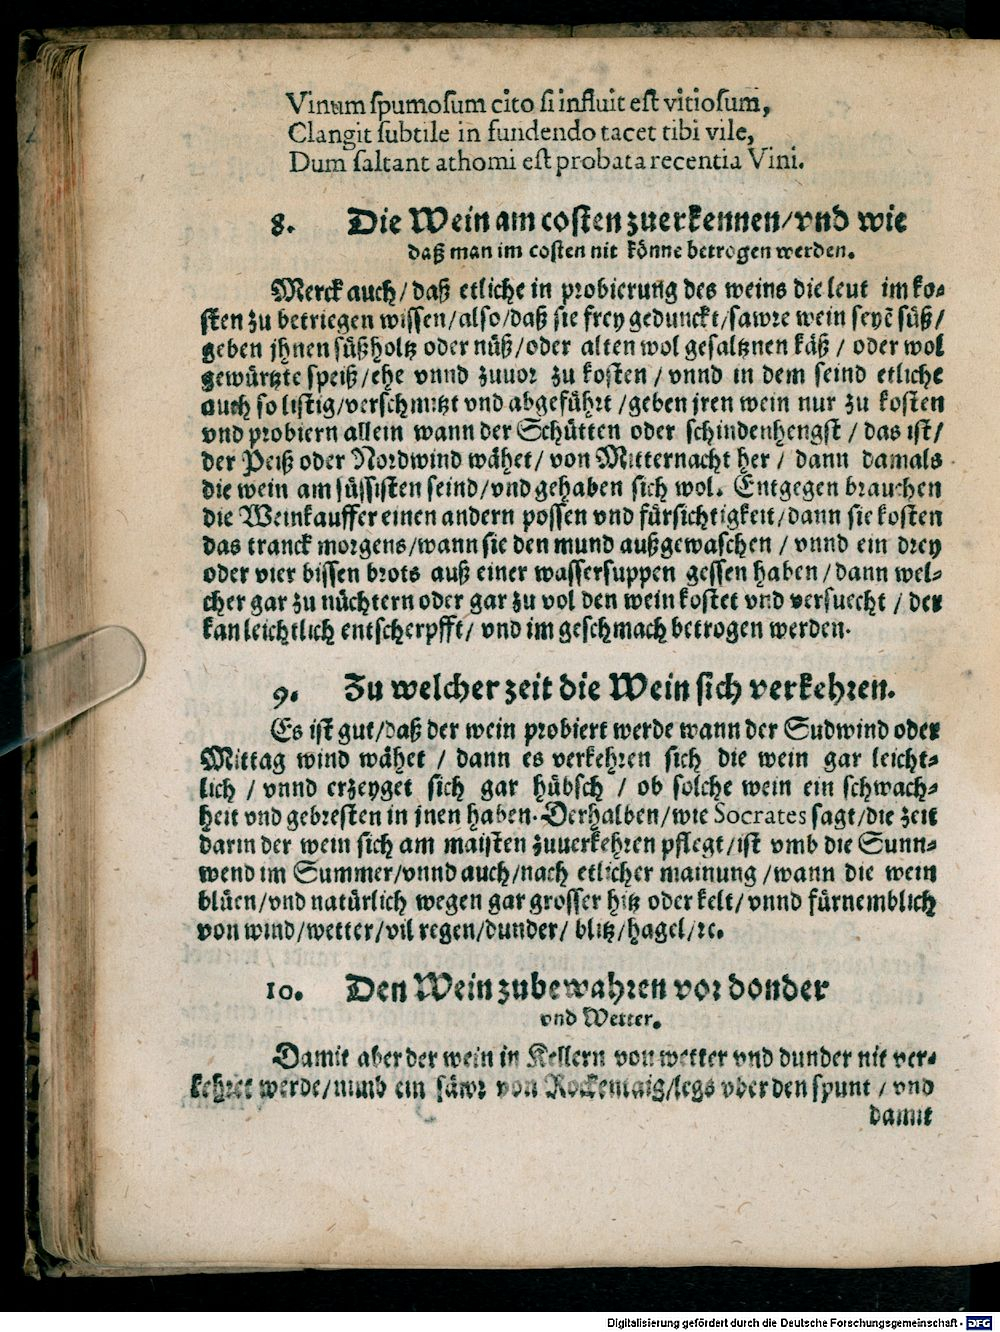 Vinum ſpumoſum cito ſi influit eſt vitioſum,
Clangit ſubtile in fundendo tacet tibi vile,
Dum ſaltant athomi eſt probata recentia Vini.
8. Die Wein am coſten zuerkennen/vnd wie
daß man im coſten nit könne betrogen werden.
Merck auch/ daß etliche in probierung des weins die leut im ko-
ſten zu betriegen wiſſen/alſo/daß ſie frey gedunckt/ſawre wein ſeyē ſüß/
geben jhnen ſüßholtz oder nüß/oder alten wol geſaltznen käß / oder wol
gewürtzte ſpeiß/ehe vnnd zuuor zu koſten / vnnd in dem ſeind etliche
auch ſo liſtig/verſchmitzt vnd abgeführt /geben jren wein nur zu koſten
vnd probiern allein wann der Schütten oder ſchindenhengſt / das iſt/
der Peiß oder Nordwind wähet/ von Mitternacht her / dann damals
die wein am ſüſſiſten ſeind/vnd gehaben ſich wol. Entgegen brauchen
die Weinkauffer einen andern poſſen vnd fürſichtigkeit/dann ſie koſten
das tranck morgens/wann ſie den mund außgewaſchen / vnnd ein drey
oder vier biſſen brots auß einer waſſerſuppen geſſen haben/dann wel-
cher gar zu nüchtern oder gar zu vol den wein koſtet vnd verſuecht / der
kan leichtlich entſcherpfft/ vnd im geſchmach betrogen werden.
9. Zu welcher zeit die Wein ſich verkehren.
Es iſt gut/daß der wein probiert werde wann der Sudwind oder
Mittag wind wähet / dann es verkehren ſich die wein gar leicht-
lich / vnnd erzeyget ſich gar hübſch / ob ſolche wein ein ſchwach-
heit vnd gebreſten in jnen haben. Derhalben/wie Socrates ſagt/die zeit
darin der wein ſich am maiſten zuuerkehren pflegt/iſt vmb die Sunn-
wend im Summer/vnnd auch/nach etlicher mainung /wann die wein
blüen/vnd natürlich wegen gar groſſer hitz oder kelt/ vnnd fürnemblich
von wind/wetter/vil regen/dunder/ blitz/hagel/ꝛc.
10. Den Wein zubewahren vor donder
vnd Wetter.
Damit aber der wein in Kellern von wetter vnd dunder nit ver-
kehret werde/nimb ein von /legs vber den ſpunt / vnd
damit
Digitalisierung gefördert durch die Deutsche Forschungsgemeinschaft - DFG